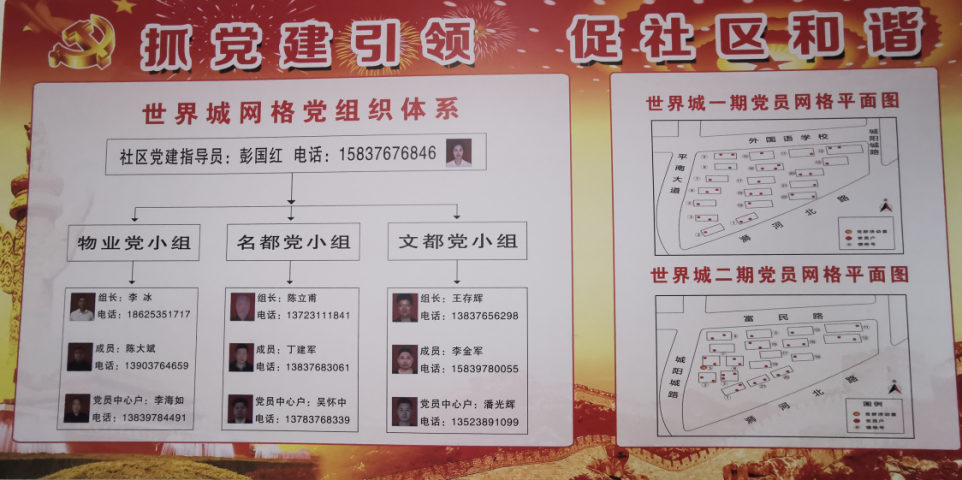 抓党建引领 促社区和谐
世界城网格党组织体系
社区党建指导员：彭国红 电话：15837676846
物业党小组
组长：李 冰
电话：18625351717
成员：陈大斌
电话：13903764659
党员中心户：李海如
电话：13839784491
名都党小组
组长：陈立甫
电话：13723111841
成员：丁建军
电话：13837683061
党员中心户：吴怀中
电话：13783768339
文都党小组
组长：王存辉
电话：13837656298
成员：李金军
电话：15839780055
党员中心户：潘光辉
电话：13523891099
世界城一期党员网格平面图
外国语学校
城阳城路
平南大道
浉河北路
图例
党员户
楼栋号
世界城二期党员网格平面图
富民路
城阳城路
浉河北路
图例
党员户
楼栋号